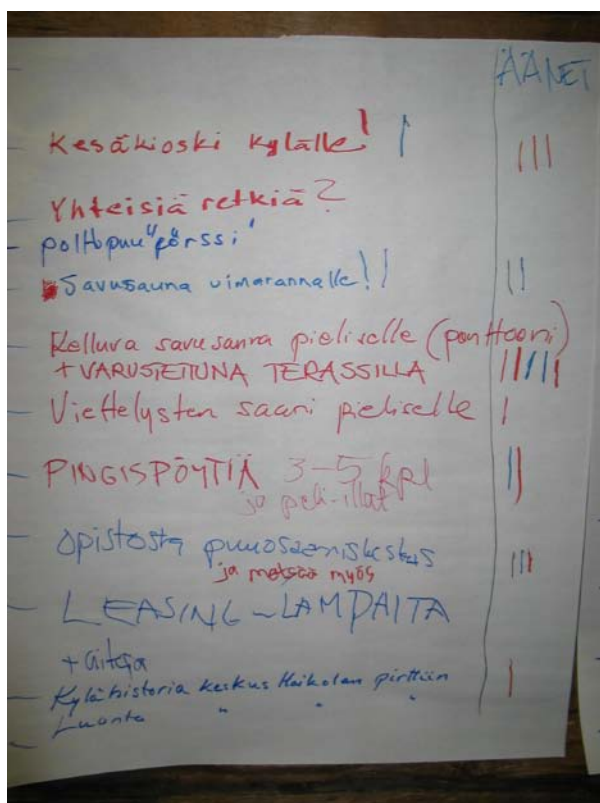 ÄÄNET
Kesäkioski kylälle!
Yhteisiä retkiä?
polttopuu "pörssi"
Savusauna uimarannalle!!
Kelluva savusauna pieliselle (ponttooni)
+ VARUSTETTUNA TERASSILLA
Viettelysten saari pieliselle
PINGISPÖYTIÄ 3-5 kpl
ja peli-illat
Opistosta puuosaamiskeskus
ja metsää myös
LEASING-LAMPAITA
+ aitoja
Kylähistoria keskus Haikolan pirttiin
Luonto " " "